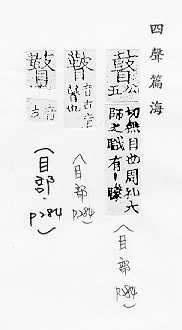 四聲篇海
瞽 公五
切無目也周礼大
師之職有瞽矇
(目部
P284)
瞽 音古
瞽也
(目部
P284)
音
古
(目部.
P284)